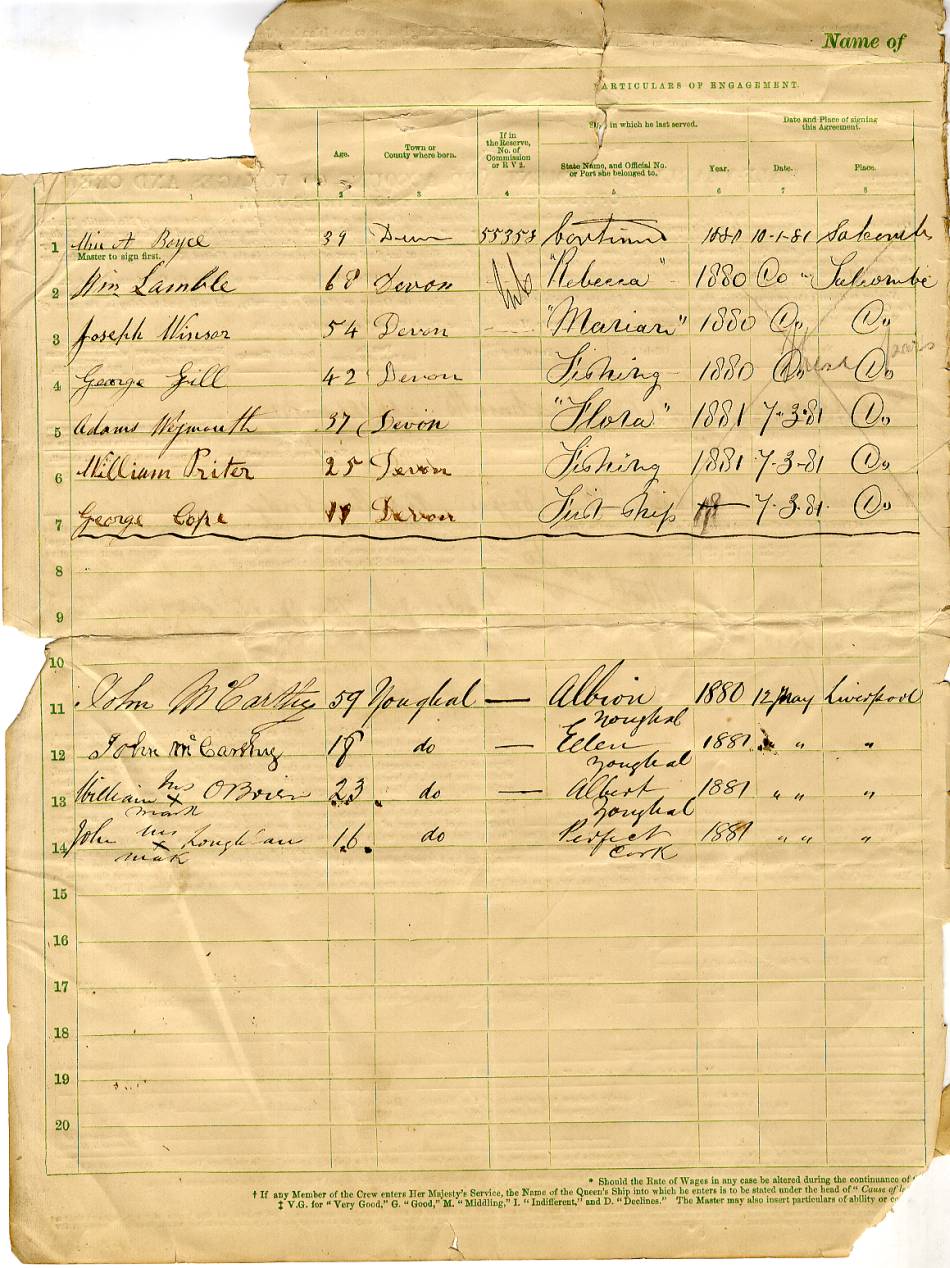 Name of
ARTICULARS OF ENGAGEMENT.
in which he last served.
Date and Place of signing this Agreement.
Age.
Town or County where born.
If in the Reserve, No. of Commission or R V 2.
State Name, and Official No. or Port she belonged to.
Year.
Date.
Place.
1 2 3 4 5 6 7 8
1 A Boyce 39 55358 1880 10-1-81 Salcombe
Master to sign first.
2 Wm Lamble 68 Devon "Rebecca" 1880 Do " Salcombe
3 Joseph Winsor 54 Devon "Marian" 1880 Do Do
4 George Gill 42 Devon Fishing 1880 Do Do
5 Adams Weymouth 37 Devon "Flora" 1881 7-3-81 Do
6 William Priter 25 Devon Fishing 1881 7-3-81 Do
7 George Cope Devon First Ship 7-3-81 Do
8
9
10
11 John McCarthy 59 Youghal — Albion 1880 12 May Liverpool
Youghal
12 John McCarthy 18 do — Ellen 1881 " " "
Youghal
13 William his X O'Brien 23 do — Albert 1881 " " "
mark Youghal
14 John his X 16 do Perfect 1881 " " "
mark Cork
15
16
17
18
19
20
* Should the Rate of Wages in any case be altered during the continuance of
† If any Member of the Crew enters Her Majesty's Service, the Name of the Queen's Ship into which he enters is to be stated under the head of "Cause of
‡ V.G. for "Very Good," G. "Good," M. "Middling," I. "Indifferent," and D. "Declines." The Master may also insert particulars of ability or